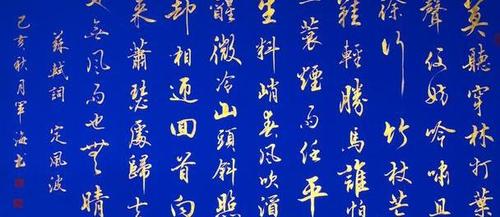 莫聽穿林打葉
聲何妨吟嘯且
徐行竹杖芒
鞋輕勝馬誰怕
一蓑煙雨任平
生料峭春風吹酒
醒微冷山頭斜照
却相迎回首向
来蕭瑟處歸去
无風雨也無晴
蘇軾詞 定風波
己亥秋月軍海書